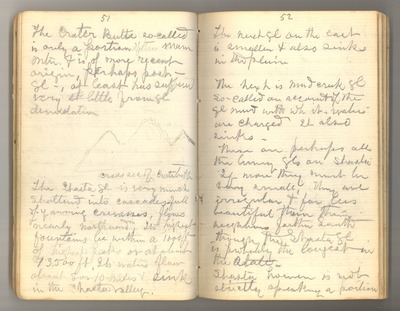 51
The Crater Butte so-called
is only a portion of the main
mtn. It is of more recent
origin, perhaps post-
gl-, at least has suffered
very little from gl
denudation
cross sec of Crater
The Shasta gl is very much
shattered into cascades full
of yawning crevasses, flows
nearly northward, its highest
fountains lie within a 1000 ft
of highest
13500 ft. Its water flows
about 8 or 10 miles & sinks
in the Shasta valley.
52
The next gl on the east
is smaller & also sinks
in the plain
The next is mud creek gl
so-called on account of the
gl mud with wh its waters
are charged It also
sinks -
These are perhaps all
the living gls on Shasta
If more they must be
very small, They are
irregular & far less
beautiful than their
neighbors farther south
though this Shasta gl
is probably the longest in
the
Shasta however is not
strictly speaking a portion